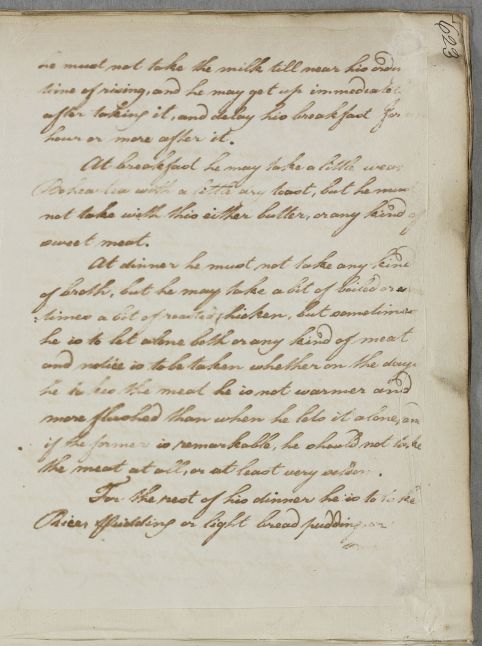 623
he must not take the milk till near his ordi
time of rising, and he may get up immediatel
after taking it, and delay his breakfast for an
hour or more after it.
At breakfast he may take a little weak
Bohea tea with a little dry toast, but he must
not take with this either butter, or any kind of
sweet meat.
At dinner he must not take any kind
of broth, but he may take a bit of boiled or some
:times a bit of roasted chicken, but sometimes
he is to let alone both or any kind of meat
and notice is to be taken whether on the days
he takes the meat he is not warmer and
more flushed than when he lets it alone, an
if the former is remarkable, he should not take
the meat at all, or at least very seldom.
For the rest of his dinner he is to take
Rice, Pudding or light bread pudding, or